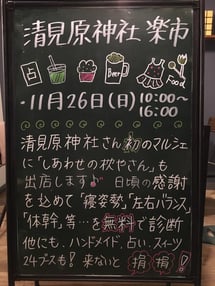 清見原神社 楽市
占
Beer
Food
・11月26日(日) 10:00〜
16:00
清見原神社さん初のマルシェ
に「しあわせの枕やさん」も
出店します♪ 日頃の感謝
を込めて「寝姿勢」「左右バランス」
「体幹」等…を無料で診断
他にも、ハンドメイド、占い、スイーツ
24ブースも! 来ないと損損!